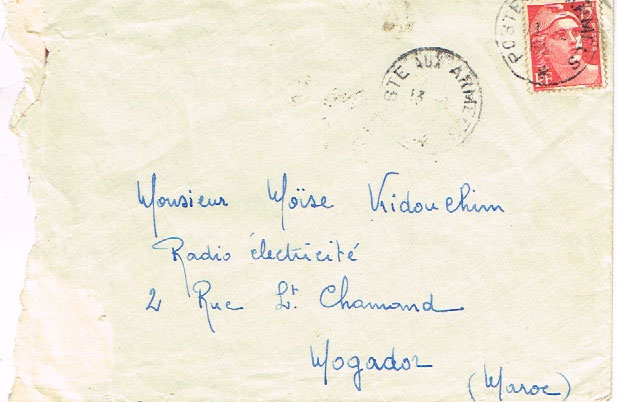 POSTE AUX ARMEES
13
POSTE ARMEES
Monsieur Moïse Kidouchim
Radio électricité
2 Rue Lt. Chamand
Mogador
(Maroc)